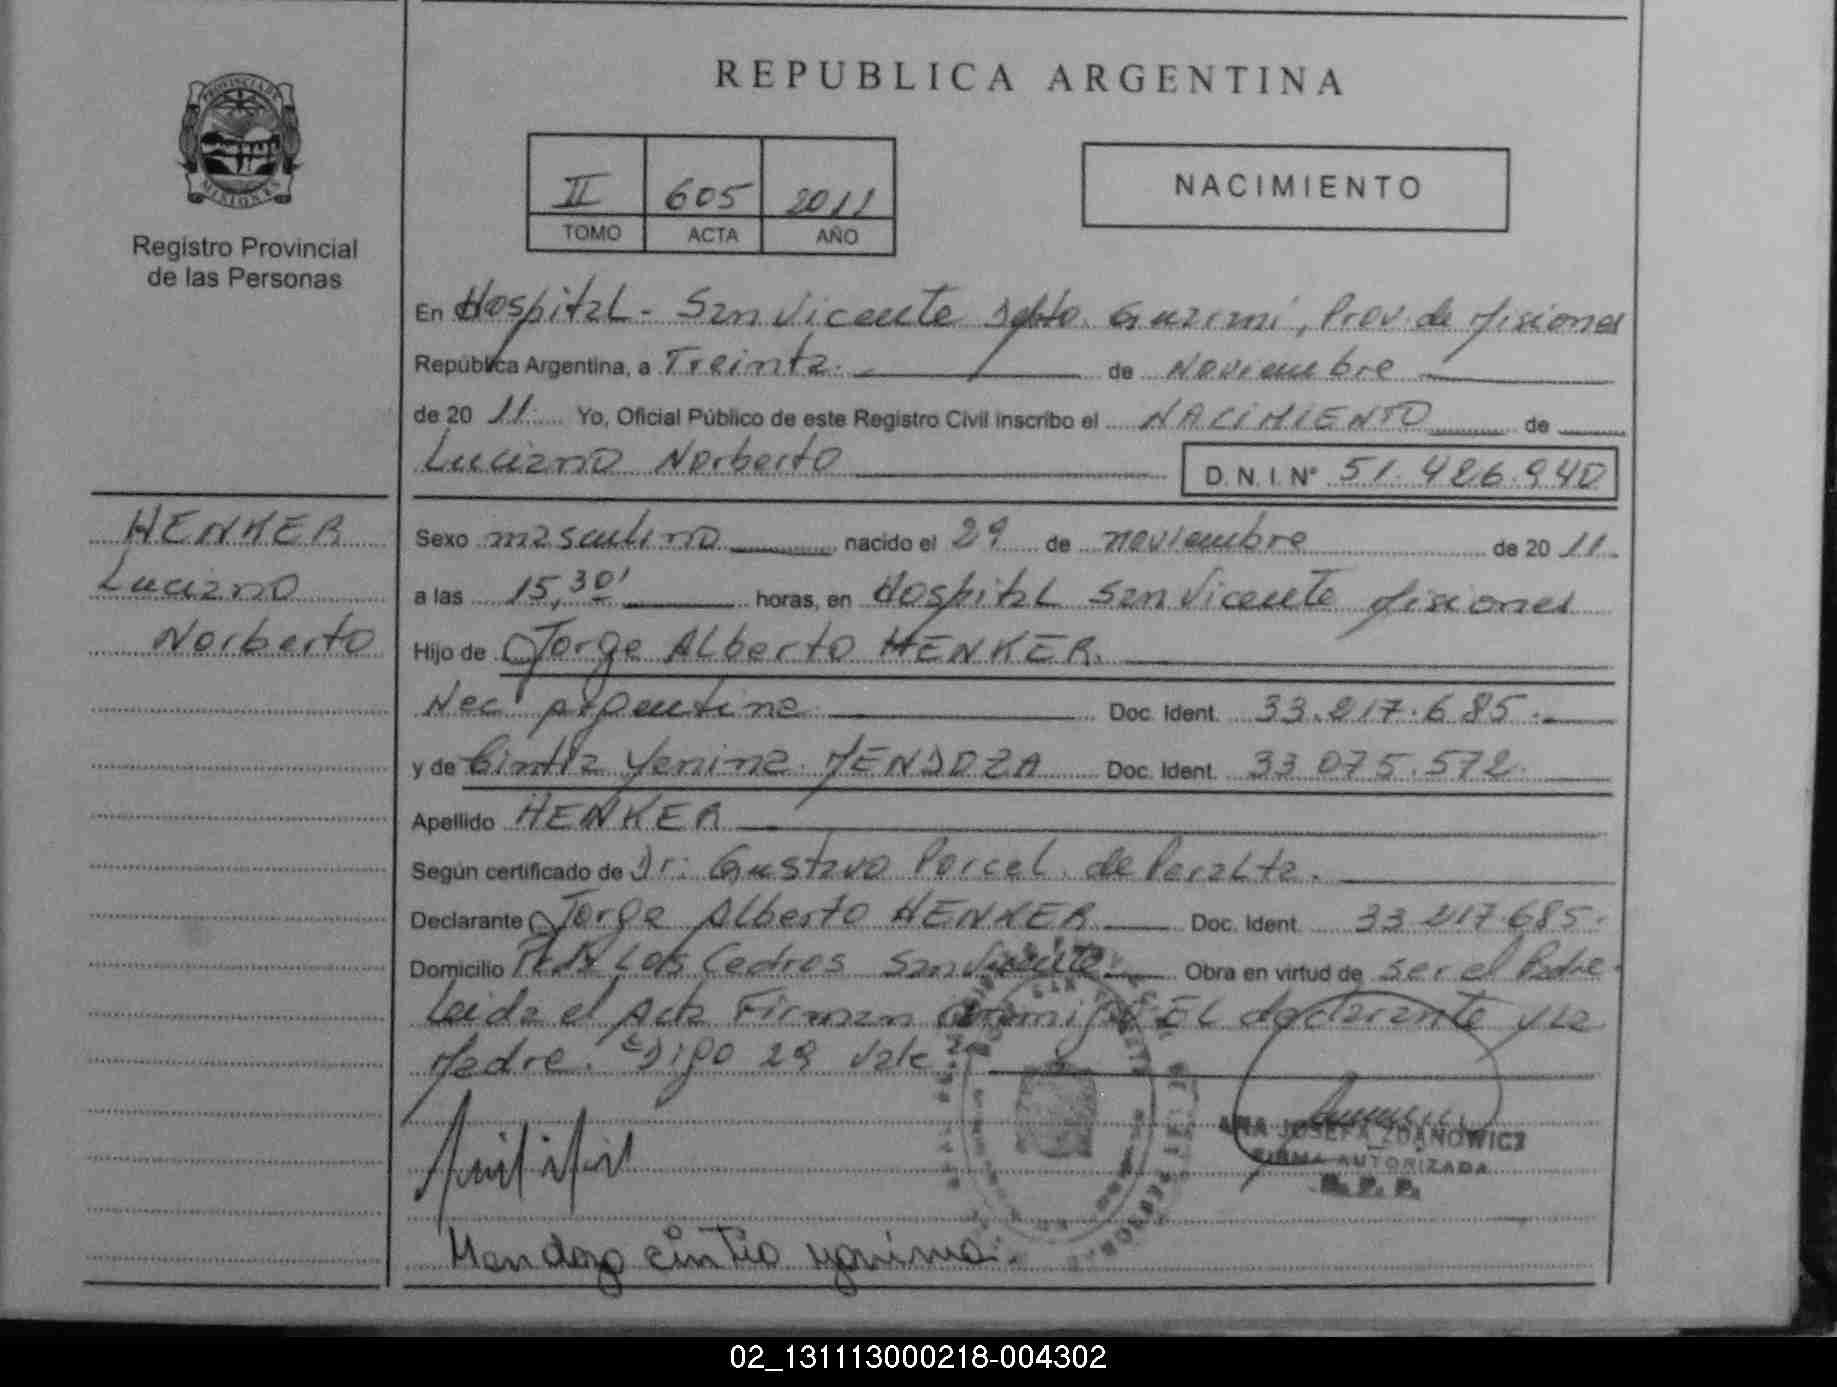 PROVINCIA DE
MISIONES
Registro Provincial
de las Personas
REPUBLICA ARGENTINA
II 605 2011
TOMO ACTA AÑO
NACIMIENTO
En Hospital - San Vicente Dpto. Guaraní, Prov. de Misiones
República Argentina, a Treinta. de Noviembre
de 20 11 Yo, Oficial Público de este Registro Civil inscribo el NACIMIENTO de
Luciano Norberto D.N.I. Nº 51.426.940
HENKER
Luciano
Norberto
Sexo masculino nacido el 29 de noviembre de 20 11.
a las 15,30' horas, en Hospital San Vicente Misiones
Hijo de Jorge Alberto HENKER.
Nac. Argentina Doc. Ident. 33.217.685.
y de Cintia Yanina MENDOZA Doc. Ident. 33.075.572.
Apellido HENKER
Según certificado de Dr. Gustavo Porcel de Peralta.
Declarante Jorge Alberto HENKER Doc. Ident. 33.217.685.
Domicilio Los Cedros San Vicente Obra en virtud de ser el Padre.
Leida el Acta Firman conmigo EL declarante y la
Madre. Digo 29 Vale.
ANA JOSEFA ZDANOWICZ
FIRMA AUTORIZADA
R. P. P.
Mendoza Cintia yanina.
02_131113000218-004302